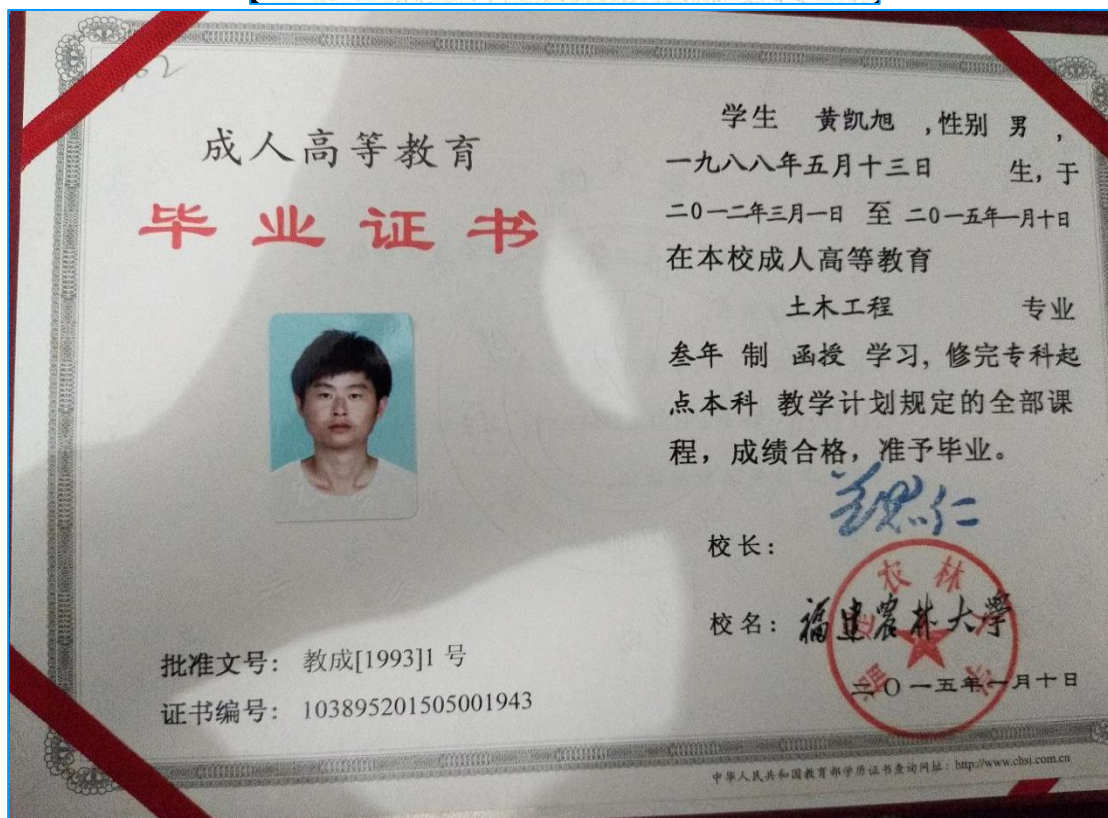 成人高等教育
毕业证书
批准文号：教成[1993]1 号
证书编号：103895201505001943
学生 黄凯旭 ,性别 男 ,
一九八八年五月十三日 生, 于
二〇一二年三月一日 至 二〇一五年一月十日
在本校成人高等教育
土木工程 专业
叁年 制 函授 学习, 修完专科起
点本科 教学计划规定的全部课
程, 成绩合格, 准予毕业。
校长：
校名：福建农林大學
福建农林大学
二〇一五年一月十日
中华人民共和国教育部学历证书查询网址：http://www.chsi.com.cn